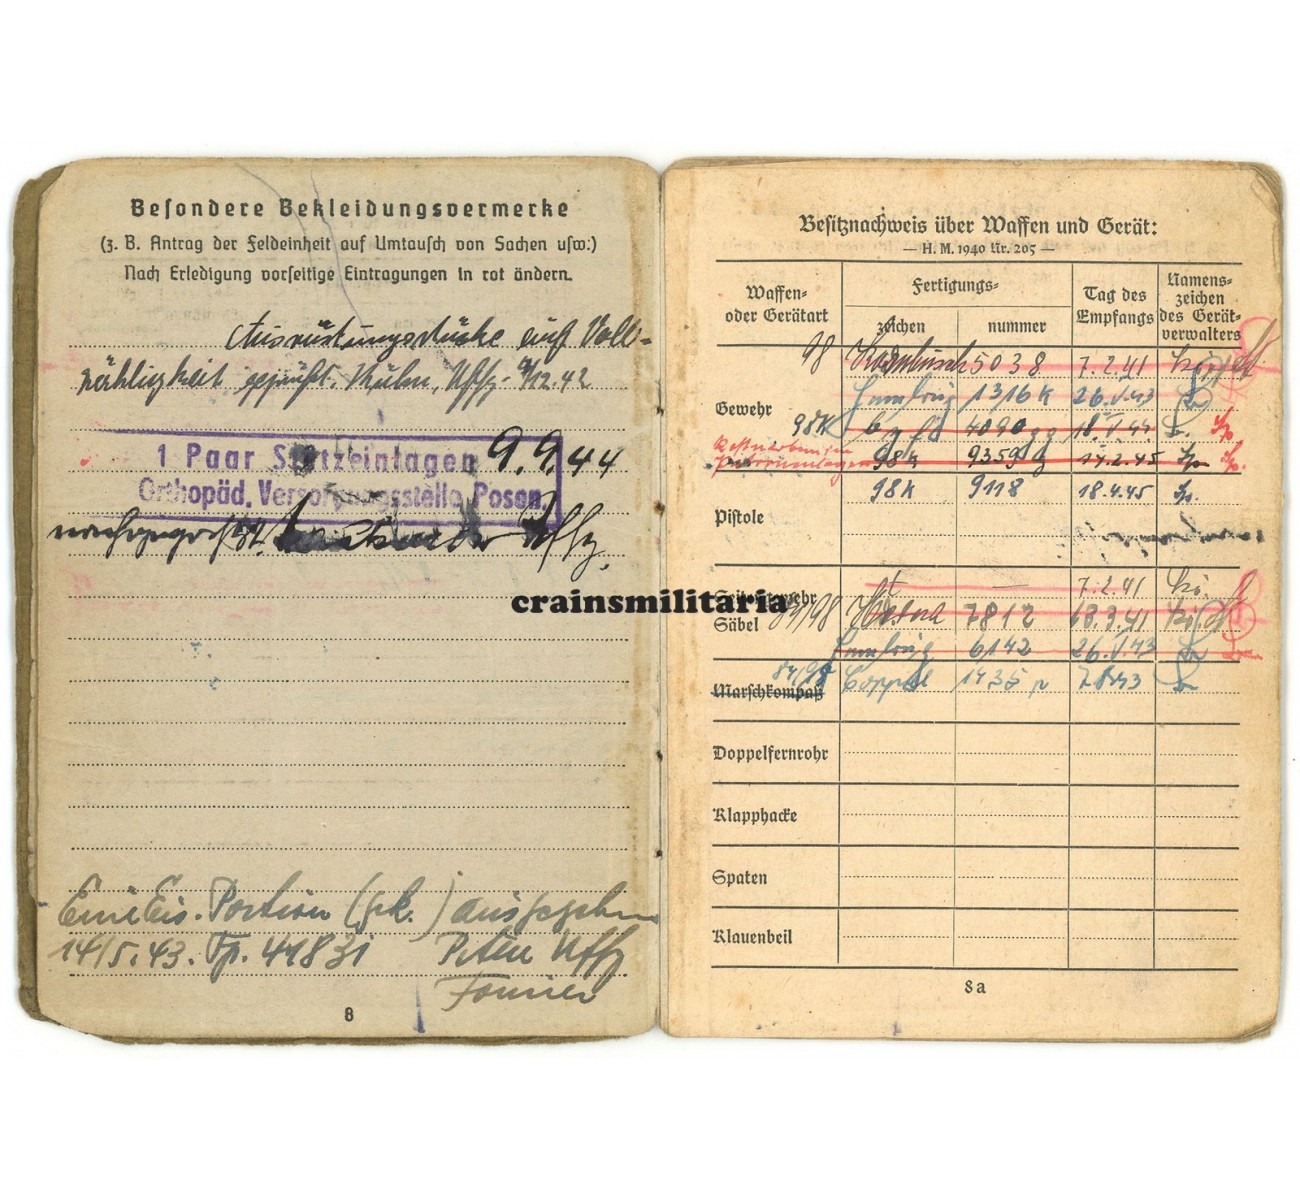 Besondere Bekleidungsvermerke
(z. B. Antrag der Feldeinheit auf Umtausch von Sachen usw.)
Nach Erledigung vorseitige Eintragungen in rot ändern.
Ausrüstungsstücke auf Voll-
zähligkeit geprüft. Uffz. 12.42
1 Paar Stützeinlagen 9.9.44
Orthopäd. Versorgungsstelle Posen.
Uffz.
crainsmilitaria
Eine Eis. Portion (gk.) ausgegeben
14/5.43. Fp. 41831 Uffz
8
Besitznachweis über Waffen und Gerät:
— H. M. 1940 Nr. 205 —
Waffen- oder Gerätart
Fertigungs-
zeichen
nummer
Tag des Empfangs
Namens-zeichen des Gerät-verwalters
98 5038 7.2.41
1316 K 26.V.43
Gewehr 98K 4090 18.V.44
98k 9359 14.2.45
98k 9118 18.4.45
Pistole
Seitengewehr — 7.2.41
Säbel 84/98 7812 13.3.41
6142 26.V.43
Marschkompaß 84/98 Coppel 1435 7.8.43
Doppelfernrohr
Klapphacke
Spaten
Klauenbeil
8a